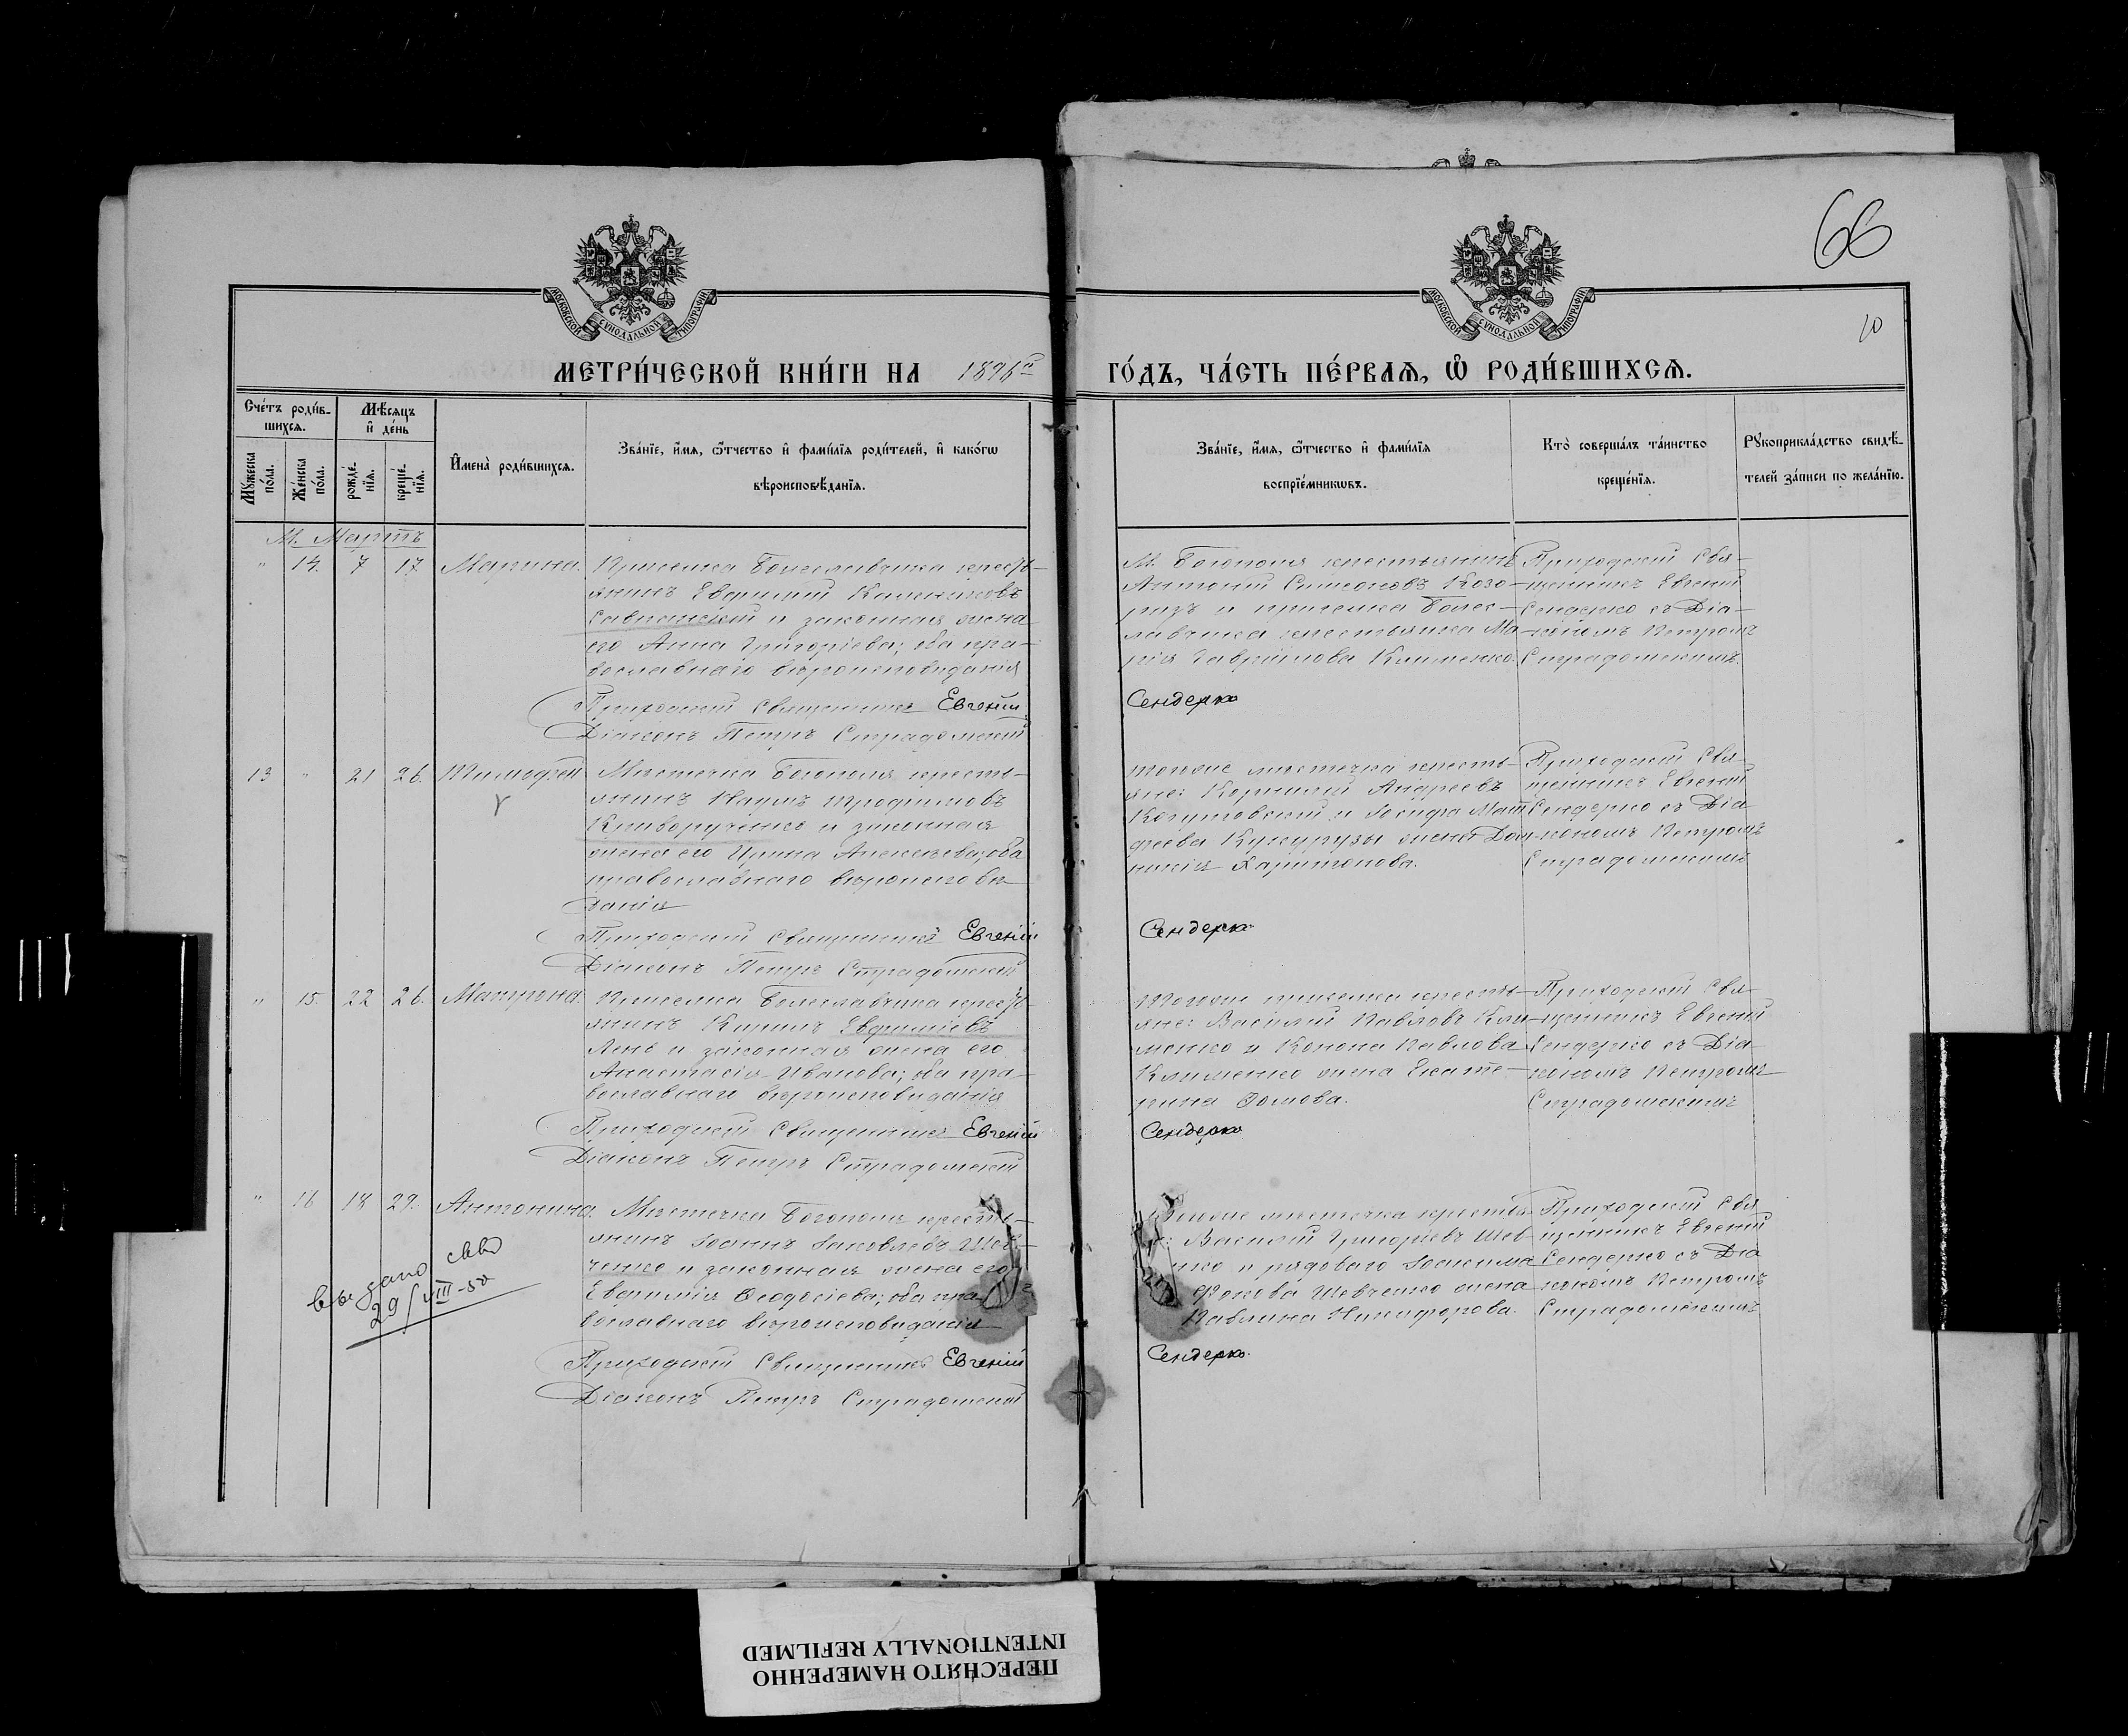 66
10
МОСКОВСКОЙ СѴНОДАЛЬНОЙ ТИПОГРАФІИ
МОСКОВСКОЙ СѴНОДАЛЬНОЙ ТИПОГРАФІИ
МЕТРИ́ЧЕСКОЙ КНИ́ГИ НА 1896й ГО́ДЪ, ЧА́СТЬ ПЕ́РВАѦ, Ѡ РОДИ́ВШИХСѦ.
Сче́тъ роди́в-
шихсѧ.
Мѣ́сѧцъ
и҆ де́нь
Мꙋ́жеска по́ла.
Же́нска по́ла.
рожде́-
нїѧ.
креще́-
нїѧ.
И҆мена̀ роди́вшихсѧ.
Зва́нїе, и҆́мѧ, ѻ҆́тчество и҆ фами́лїѧ роди́телей, и҆ како́гѡ
вѣроисповѣ́данїѧ.
Зва́нїе, и҆́мѧ, ѻ҆́тчество и҆ фами́лїѧ
воспрїе́мникѡвъ.
Кто̀ соверша́лъ та́инство
креще́нїѧ.
Рꙋкоприкла́дство свидѣ́-
телей за́писи по жела́нїю.
М. Мартъ
" 14. 7 17. Марина.
Приселка Болеславчика кресть-
янинъ Евфимій Калениковъ
Савранскій и законная жена
его Анна Григоріева; оба пра-
вославнаго вѣроисповѣданія
Приходскій Священникъ Евгеній
Діаконъ Петръ Страдомскій
М. Богополя крестьянинъ
Антоній Симоновъ Козо-
ризъ и приселка Болес-
лавчика крестьянка Ма-
рія Гавріилова Клименко.
Сендерко
Приходскій Свя-
щенникъ Евгеній
Сендерко съ Діа-
кономъ Петромъ
Страдомскимъ.
13 " 21 26. Тимофей
Мѣстечка Богополя кресть-
янинъ Наумъ Трофимовъ
Криворученко и законная
жена его Ирина Алексѣева; оба
православнаго вѣроисповѣ-
данія
Приходскій Священникъ Евгеній
Діаконъ Петръ Страдомскій
тогоже мѣстечка кресть-
яне: Корнилій Андреевъ
и Іосифа Мат
фѣева Кукурузы жена Дом-
никія Харитонова.
Сендерко
Приходскій Свя-
щенникъ Евгеній
Сендерко съ Діа
кономъ Петромъ
Страдомскимъ
" 15. 22 26. Матрона.
Приселка Болеславчика кресть
янинъ Кирилъ Евфиміевъ
Лень и законная жена его
Анастасія Иванова; оба пра-
вославнаго вѣроисповѣданія
Приходскій Священникъ Евгеній
Діаконъ Петръ Страдомскій
Тогоже приселка кресть-
яне: Василій Павловъ Кли-
менко и Конона Павлова
Клименко жена Екате-
рина Ѳомова.
Сендерко
Приходскій Свя-
щенникъ Евгеній
Сендерко съ Діа-
кономъ Петромъ
Страдомскимъ
" 16 18 29. Антонина.
Мѣстечка Богополя кресть-
янинъ Іоаннъ Іаковлевъ Шев-
ченко и законная жена его
Евфимія Ѳеодосіева; оба пра-
вославнаго вѣроисповѣданія
Приходскій Священникъ Евгеній
Діаконъ Петръ Страдомскій
выдано свид
29/VIII-50
тогоже мѣстечка крестья
Василій Григоріевъ Шев
нко и рядоваго Іоакима
Фокова Шевченко жена
Павлина Никифорова.
Сендерко.
Приходскій Свя
щенникъ Евгеній
Сендерко съ Діа
кономъ Петромъ
Страдомскимъ
ПЕРЕСНЯТО НАМЕРЕННО
INTENTIONALLY REFILMED